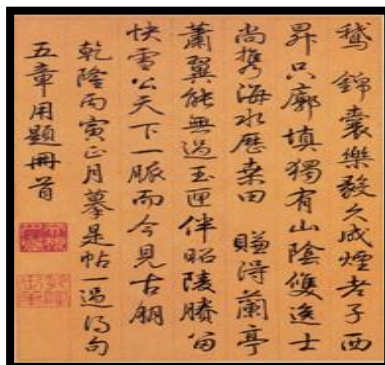 鵝 錦囊樂毅久成煙老子西
昇只廓填獨有山陰雙逸士
尚携海水歷桑田 賺得蘭亭
蕭翼能無過玉匣伴昭陵賸留
快雪公天下一脈而今見古
乾隆丙寅正月摹是帖一過得句
五章用題冊首